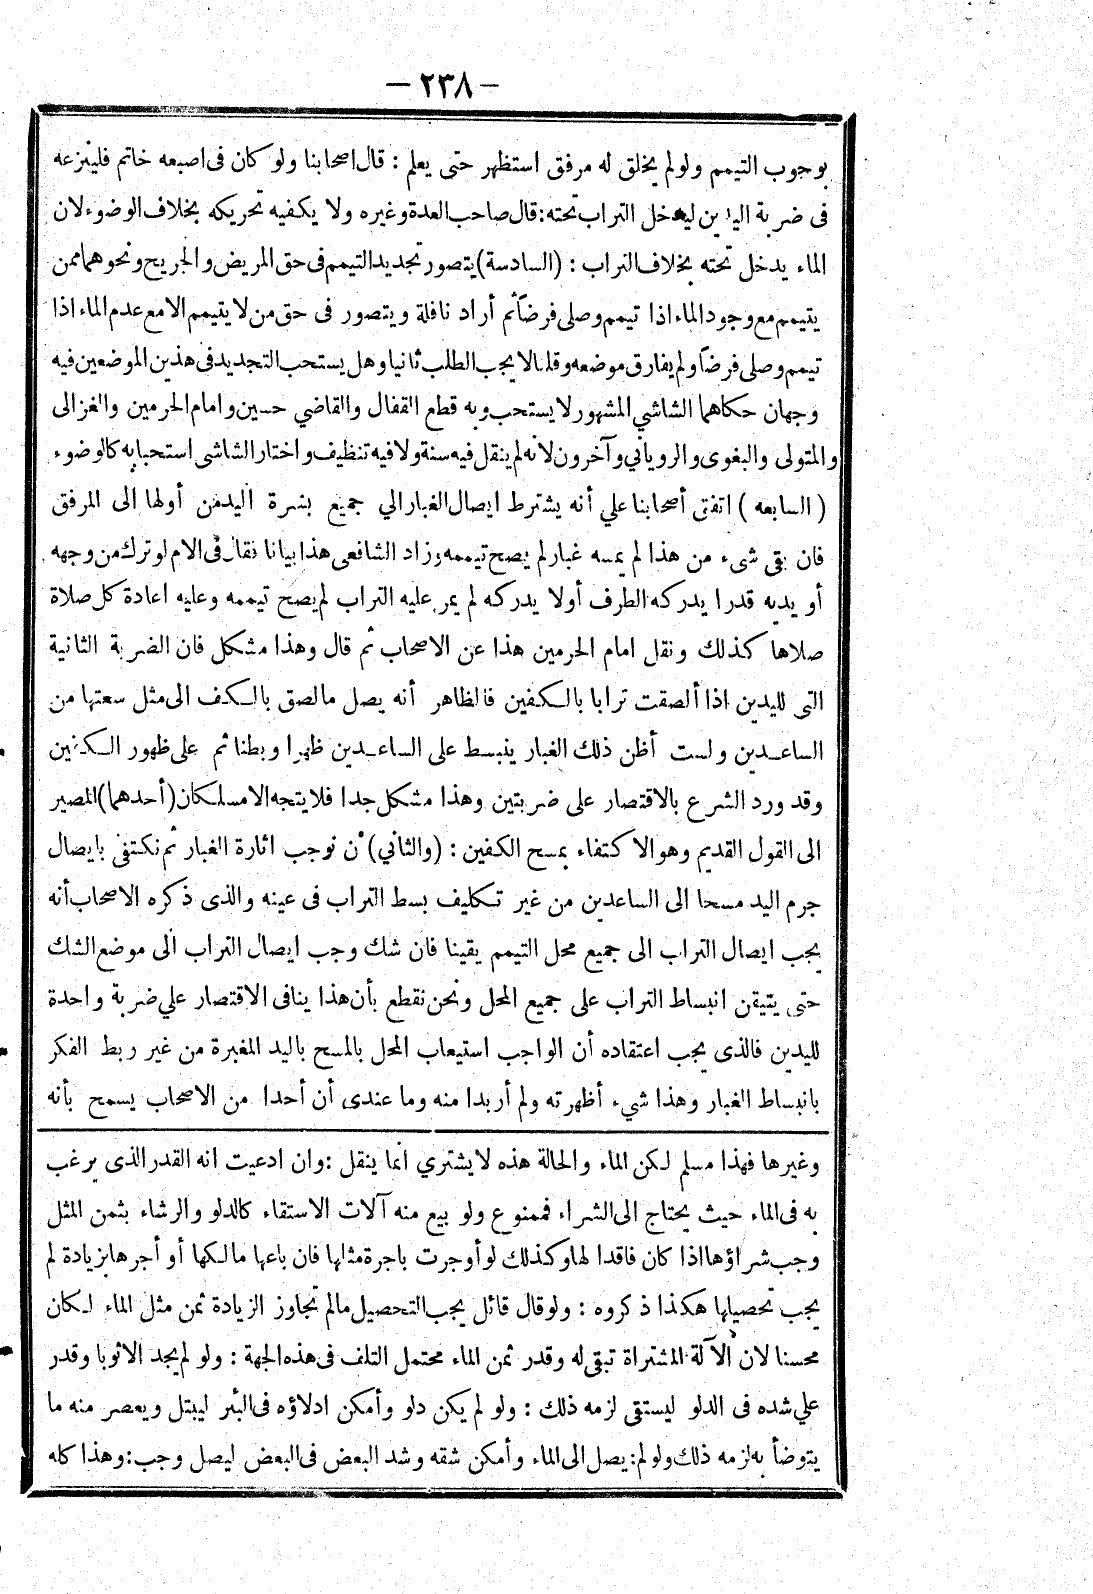 — ٢٣٨ —
بوجوب التيمم ولو لم يخلق له مرفق استظهر حتى يعلم : قال اصحابنا ولو كان فى اصبعه خاتم فلينزعه
فى ضربة اليدين ليدخل التراب تحته : قال صاحب العدة وغيره ولا يكفيه تحريكه بخلاف الوضوء لان
الماء يدخل تحته بخلاف التراب : (السادسة) يتصور تجديد التيمم فى حق المريض والجريح ونحوهما ممن
يتيمم مع وجود الماء اذا تيمم وصلى فرضا ثم أراد نافلة ويتصور فى حق من لا يتيمم الا مع عدم الماء اذا
تيمم وصلى فرضا ولم يفارق موضعه وقلنا لا يجب الطلب ثانيا وهل يستحب التجديد فى هذين الموضعين فيه
وجهان حكاهما الشاشي المشهور لا يستحب وبه قطع القفال والقاضي حسين وامام الحرمين والغزالى
والمتولى والبغوى والروياني وآخرون لانه لم ينقل فيه سنة ولا فيه تنظيف واختار الشاشى استحبابه كالوضوء
( السابعه ) اتفق أصحابنا علي أنه يشترط ايصال الغبار الي جميع بشرة اليد من أولها الى المرفق
فان بقى شىء من هذا لم يمسه غبار لم يصح تيممه وزاد الشافعى هذا بيانا نقال فى الام لو ترك من وجهه
أو يديه قدرا يدركه الطرف أولا يدركه لم يمر عليه التراب لم يصح تيممه وعليه اعادة كل صلاة
صلاها كذلك ونقل امام الحرمين هذا عن الاصحاب ثم قال وهذا مشكل فان الضربة الثانية
التى لليدين اذا ألصقت ترابا بالكفين فالظاهر أنه يصل ما لصق بالكف الى مثل سعتها من
الساعدين ولست أظن ذلك الغبار ينبسط على الساعدين ظهرا وبطنا ثم على ظهور الكفين
وقد ورد الشرع بالاقتصار على ضربتين وهذا مشكل جدا فلا يتجه الا مسلكان (أحدهما) المصير
الى القول القديم وهو الاكتفاء بمسح الكفين : (والثاني) أن نوجب اثارة الغبار ثم نكتفى بايصال
جرم اليد مسحا الى الساعدين من غير تكليف بسط التراب فى عينه والذى ذكره الاصحاب أنه
يجب ايصال التراب الى جميع محل التيمم يقينا فان شك وجب ايصال التراب الى موضع الشك
حتى يتيقن انبساط التراب على جميع المحل ونحن نقطع بأن هذا ينافى الاقتصار علي ضربة واحدة
لليدين فالذى يجب اعتقاده أن الواجب استيعاب المحل بالمسح باليد المغبرة من غير ربط الفكر
بانبساط الغبار وهذا شيء أظهرته ولم أربدا منه وما عندى أن أحدا من الاصحاب يسمح بأنه
وغيرها فهذا مسلم لكن الماء والحالة هذه لا يشتري انما ينقل : وان ادعيت انه القدر الذى يرغب
به فى الماء حيث يحتاج الى الشراء فممنوع ولو بيع منه آلات الاستقاء كالدلو والرشاء بثمن المثل
وجب شراؤها اذا كان فاقدا لها وكذلك لو أوجرت باجرة مثلها فان باعها مالكها أو أجرها بزيادة لم
يجب تحصيلها هكذا ذكروه : ولو قال قائل يجب التحصيل مالم تجاوز الزيادة ثمن مثل الماء لكان
محسنا لان الآلة المشتراة تبقى له وقدر ثمن الماء محتمل التلف فى هذه الجهة : ولو لم يجد الا ثوبا وقدر
علي شده فى الدلو ليستقى لزمه ذلك : ولو لم يكن دلو وأمكن ادلاؤه فى البئر ليبتل ويعصر منه ما
يتوضأ به لزمه ذلك ولو لم : يصل الى الماء وأمكن شقه وشد البعض فى البعض ليصل وجب : وهذا كله